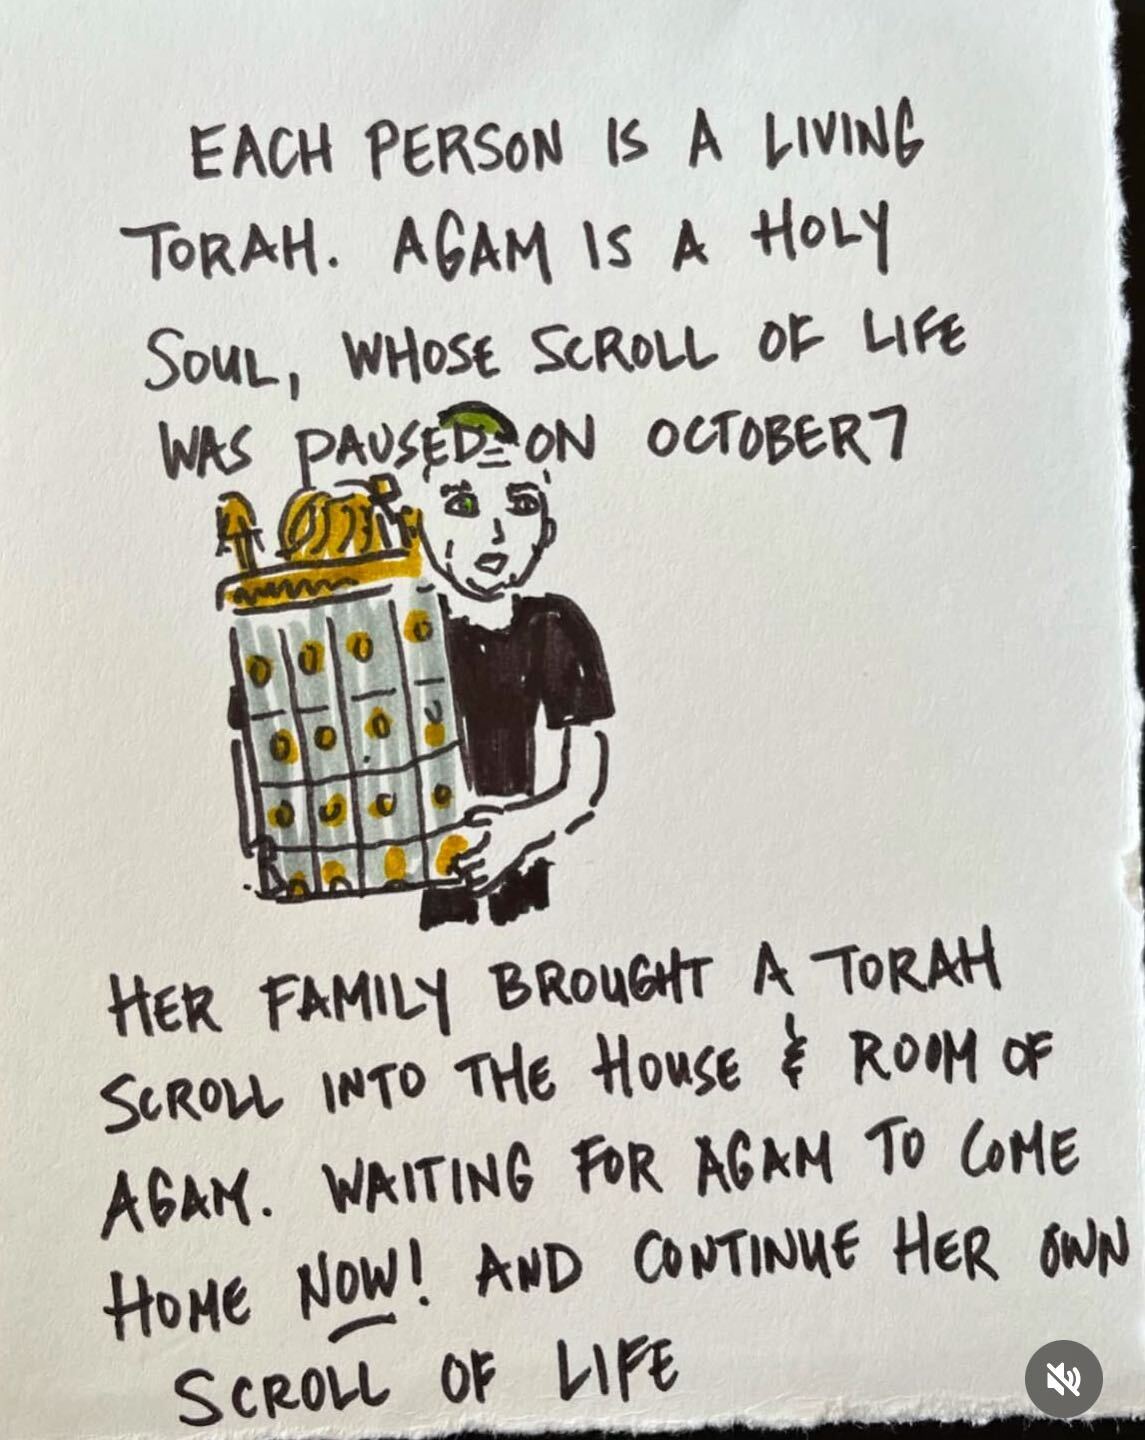 EACH PERSON IS A LIVING
TORAH. AGAM IS A HOLY
SOUL, WHOSE SCROLL OF LIFE
WAS PAUSED ON OCTOBER 7
HER FAMILY BROUGHT A TORAH
SCROLL INTO THE HOUSE & ROOM OF
AGAM. WAITING FOR AGAM TO COME
HOME NOW! AND CONTINUE HER OWN
SCROLL OF LIFE